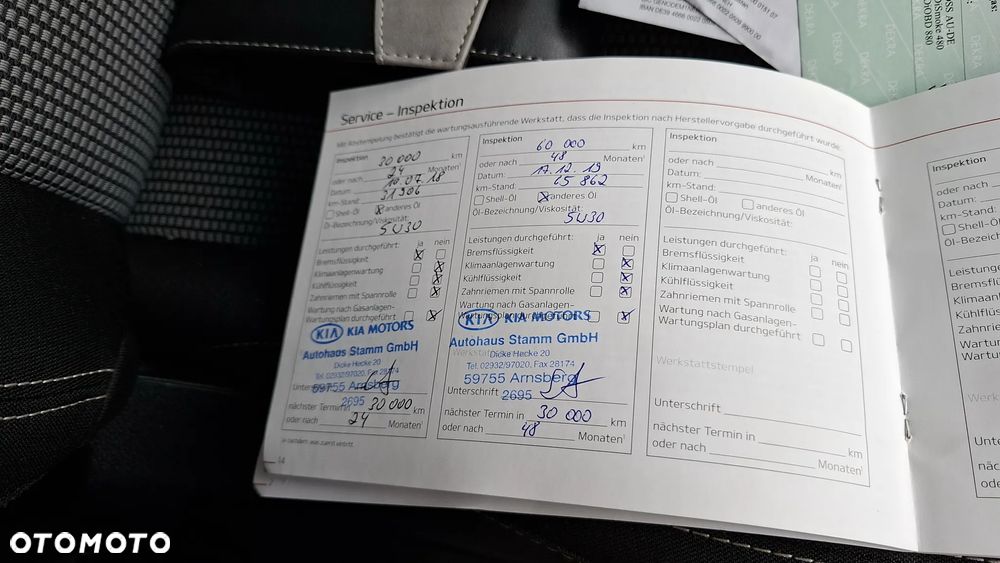 BIC GENODEM1NEH
IBAN DE39 4666 0022 0509 9900 00
DEKRA
SS AU-DE
DiSmoke 480
OOBD 880
Service – Inspektion
Mit Abstempelung bestätigt die wartungsausführende Werkstatt, dass die Inspektion nach Herstellervorgabe durchgeführt wurde.
Inspektion 30 000 km
oder nach 24 Monaten¹
Datum 10.07.18
km-Stand: 31306
Shell-Öl anderes Öl
Öl-Bezeichnung/Viskosität:
5W30
Leistungen durchgeführt: ja nein
Bremsflüssigkeit
Klimaanlagenwartung
Kühlflüssigkeit
Zahnriemen mit Spannrolle
Wartung nach Gasanlagen-
Wartungsplan durchgeführt
KIA KIA MOTORS
Autohaus Stamm GmbH
Dicke Hecke 20
Tel. 02932/97020, Fax 28174
59755 Arnsberg
2695
Unterschrift
nächster Termin in 30 000 km
oder nach 24 Monaten¹
je nachdem, was zuerst eintritt
14
Inspektion 60 000 km
oder nach 48 Monaten¹
Datum: 17.12.19
km-Stand: 65 862
Shell-Öl anderes Öl
Öl-Bezeichnung/Viskosität:
5W30
Leistungen durchgeführt: ja nein
Bremsflüssigkeit
Klimaanlagenwartung
Kühlflüssigkeit
Zahnriemen mit Spannrolle
Wartung nach Gasanlagen-
Wartungsplan durchgeführt
KIA KIA MOTORS
Autohaus Stamm GmbH
Dicke Hecke 20
Tel. 02932/97020, Fax 28174
59755 Arnsberg
2695
Unterschrift
nächster Termin in 30 000 km
oder nach 48 Monaten¹
Inspektion
km
oder nach Monaten¹
Datum:
km-Stand:
Shell-Öl anderes Öl
Öl-Bezeichnung/Viskosität:
Leistungen durchgeführt: ja nein
Bremsflüssigkeit
Klimaanlagenwartung
Kühlflüssigkeit
Zahnriemen mit Spannrolle
Wartung nach Gasanlagen-
Wartungsplan durchgeführt
Werkstattstempel
Unterschrift
nächster Termin in km
oder nach Monaten¹
Inspektion
oder nach
Datum:
km-Stand:
Shell-Öl
Öl-Bezeichn
Leistungen
Bremsflüss
Klimaanlag
Kühlflüssig
Zahnrieme
Wartung
Wartung
Werk
Unt
näch
ode
OTOMOTO